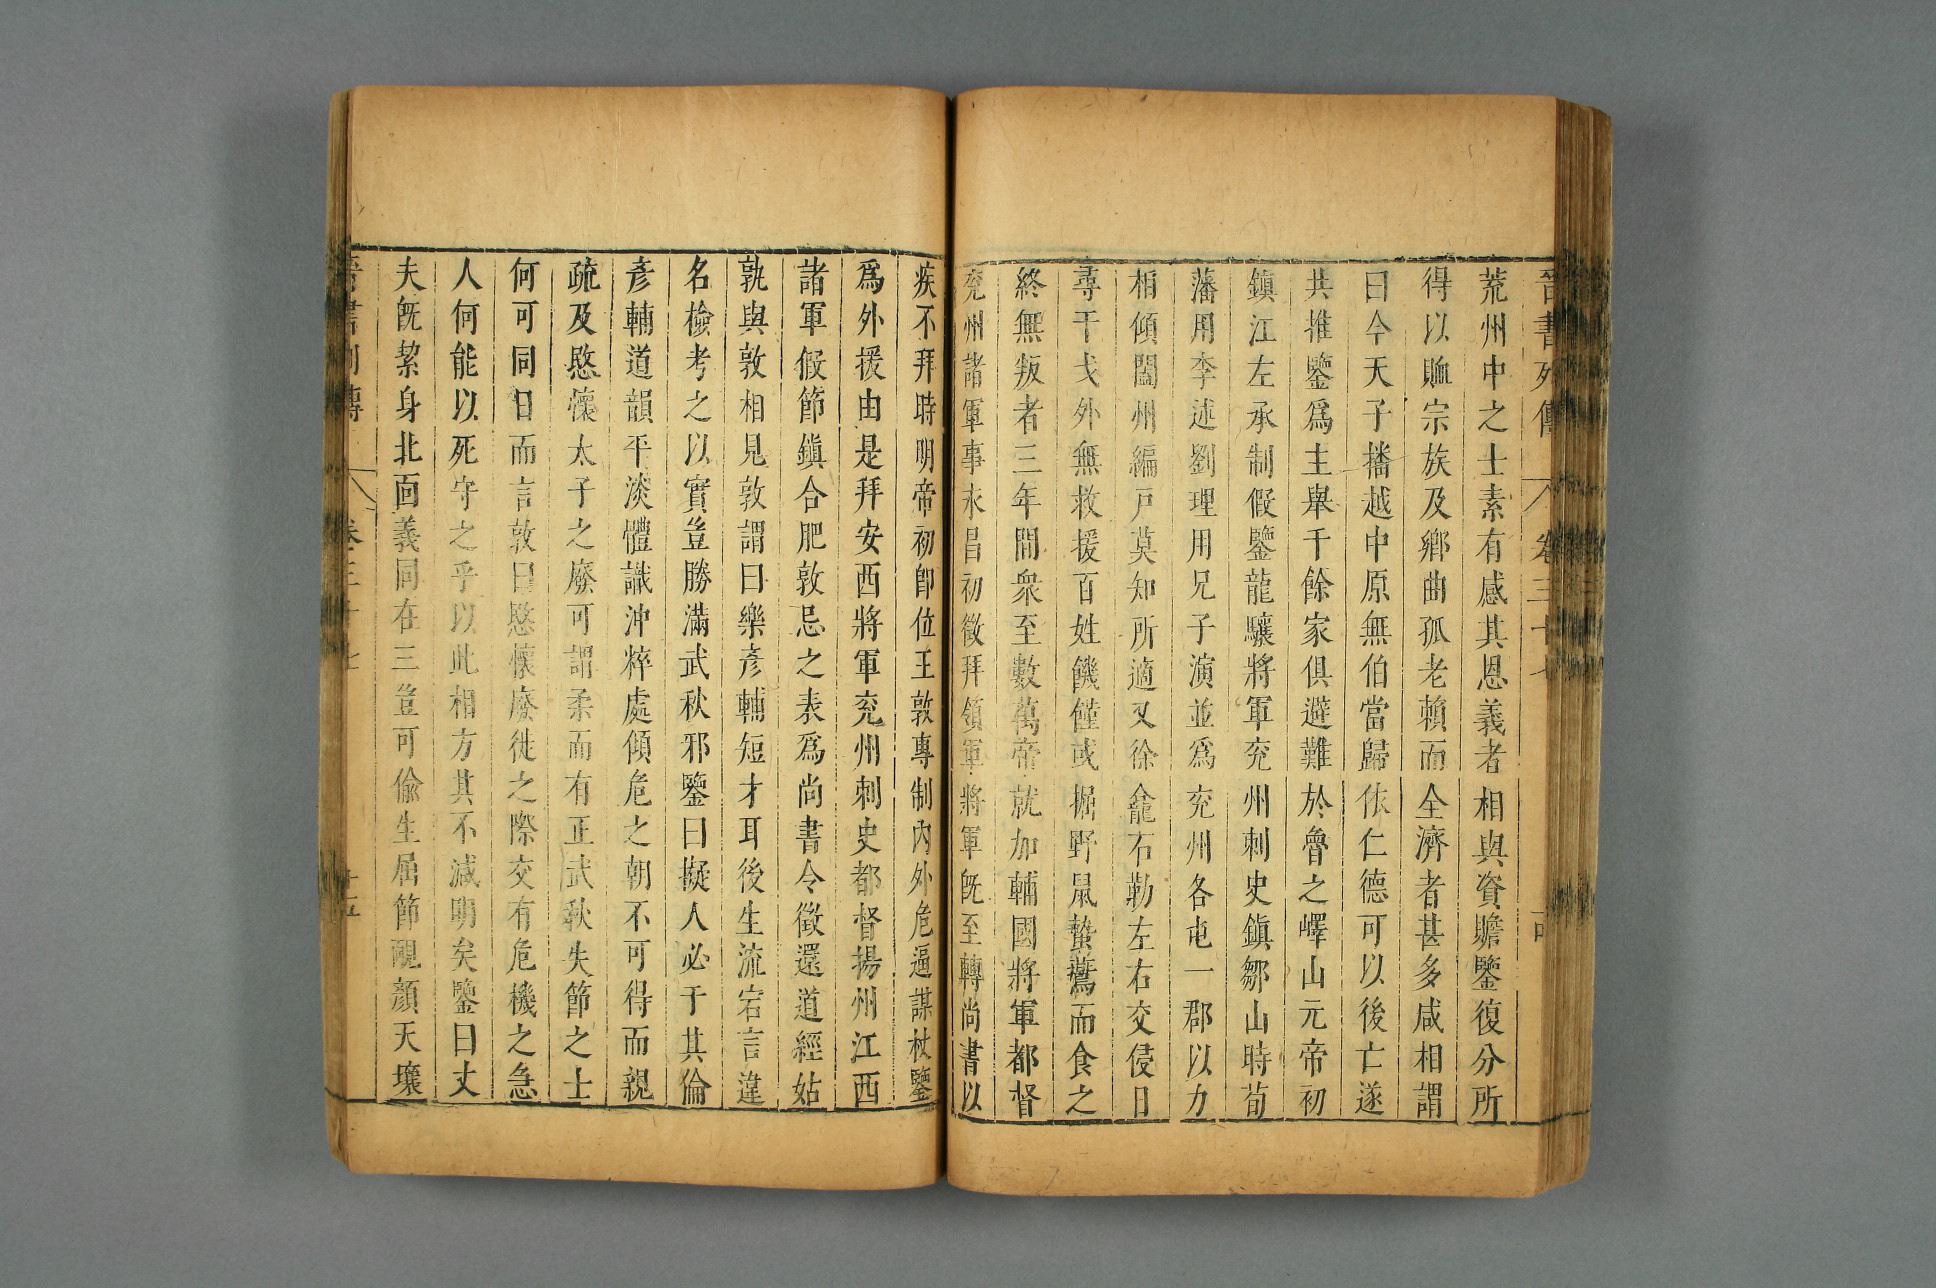 晉書列傳 卷三十七 十四
荒州中之士素有感其恩義者相與資贍鑒復分所
得以賉宗族及鄉曲孤老賴而全濟者甚多咸相謂
曰今天子播越中原無伯當歸依仁德可以後亡遂
共推鑒爲主舉千餘家俱避難於魯之嶧山元帝初
鎮江左承制假鑒龍驤將軍兗州刺史鎮鄒山時荀
藩用李述劉理用兄子演並爲兗州各屯一郡以力
相傾闔州編戸莫知所適又徐龕石勒左右交侵日
尋干戈外無救援百姓饑饉或掘野鼠蟄鷰而食之
終無叛者三年間衆至數萬帝就加輔國將軍都督
兗州諸軍事永昌初徵拜領軍將軍旣至轉尚書以
疾不拜時明帝初卽位王敦專制內外危逼謀杖鑒
爲外援由是拜安西將軍兗州刺史都督揚州江西
諸軍假節鎮合肥敦忌之表爲尚書令徵還道經姑
孰與敦相見敦謂曰樂彥輔短才耳後生流宕言違
名檢考之以實豈勝滿武秋邪鑒曰擬人必于其倫
彥輔道韻平淡體識沖粹處傾危之朝不可得而親
疏及愍懷太子之廢可謂柔而有正武秋失節之士
何可同日而言敦曰愍懷廢徙之際交有危機之急
人何能以死守之乎以此相方其不減明矣鑒曰丈
夫旣絜身北面義同在三豈可偷生屈節靦顏天壤
晉書列傳 卷三十七 十五